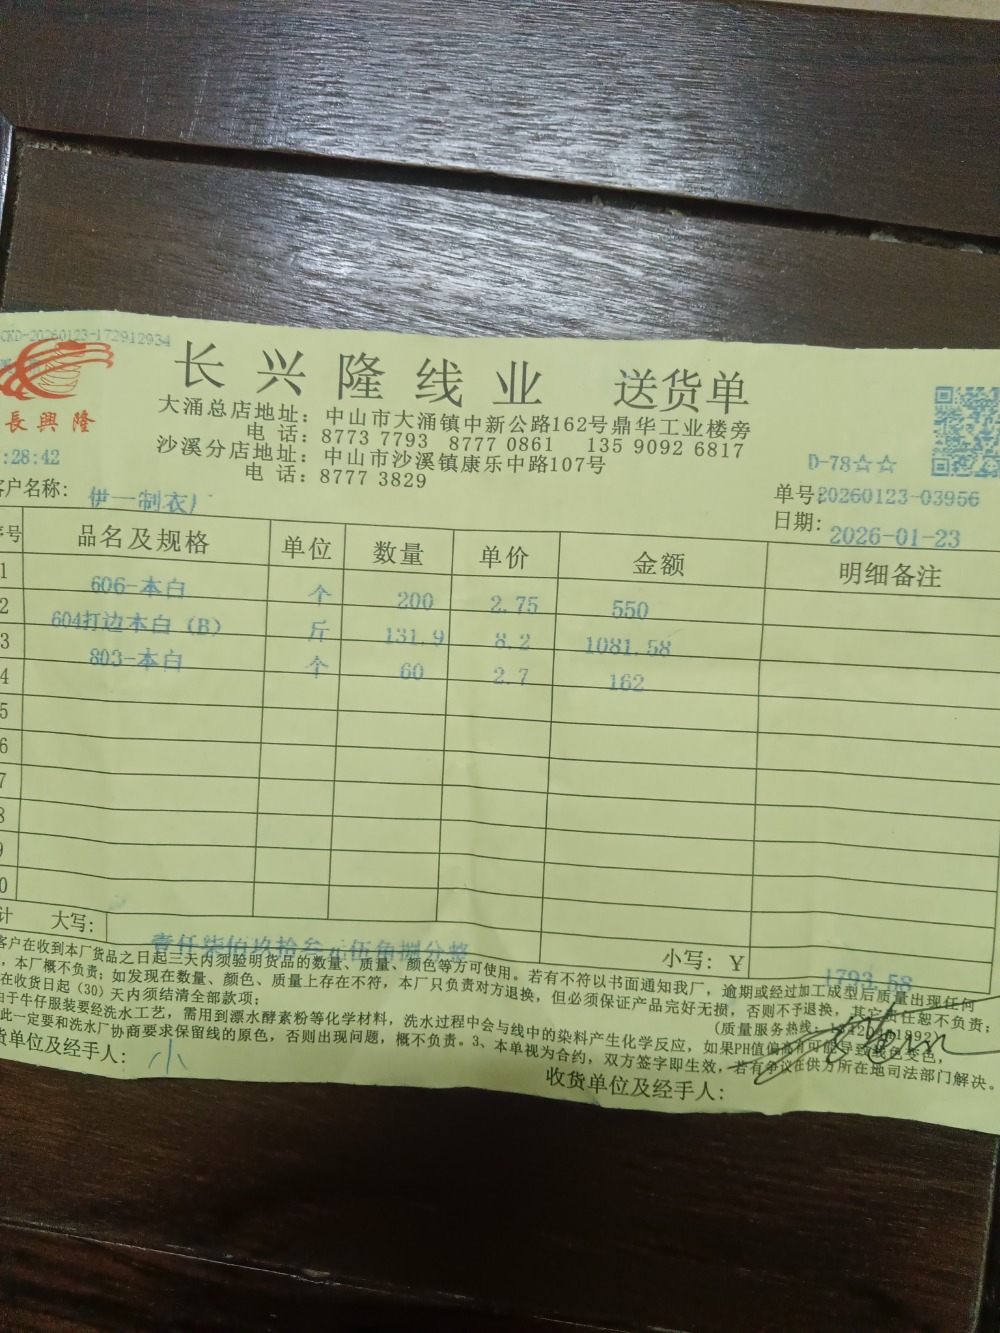 CKD-20260123-172912934
長興隆
长兴隆线业 送货单
大涌总店地址：中山市大涌镇中新公路162号鼎华工业楼旁
电 话：8773 7793 8777 0861 135 9092 6817
沙溪分店地址：中山市沙溪镇康乐中路107号
电 话：8777 3829
:28:42
D-78☆☆
客户名称： 伊一制衣厂
单号：20260123-03956
日期：2026-01-23
序号 品名及规格 单位 数量 单价 金额 明细备注
1 606-本白 个 200 2.75 550
2 604打边本白（B） 斤 131.9 8.2 1081.58
3 803-本白 个 60 2.7 162
4
5
6
7
8
9
0
计 大写： 壹仟柒佰玖拾叁元伍角捌分整 小写：￥ 1793.58
客户在收到本厂货品之日起三天内须验明货品的数量、质量、颜色等方可使用。若有不符以书面通知我厂，逾期或经过加工成型后质量出现任何
，本厂概不负责；如发现在数量、颜色、质量上存在不符，本厂只负责对方退换，但必须保证产品完好无损，否则不予退换，其它责任恕不负责；
在收货日起（30）天内须结清全部款项；
（质量服务热线：
由于牛仔服装要经洗水工艺，需用到漂水酵素粉等化学材料，洗水过程中会与线中的染料产生化学反应，如果PH值偏高有可能导致线色变色，
此一定要和洗水厂协商要求保留线的原色，否则出现问题，概不负责。3、本单视为合约，双方签字即生效，若有争议在供方所在地司法部门解决。
货单位及经手人： 小
收货单位及经手人：